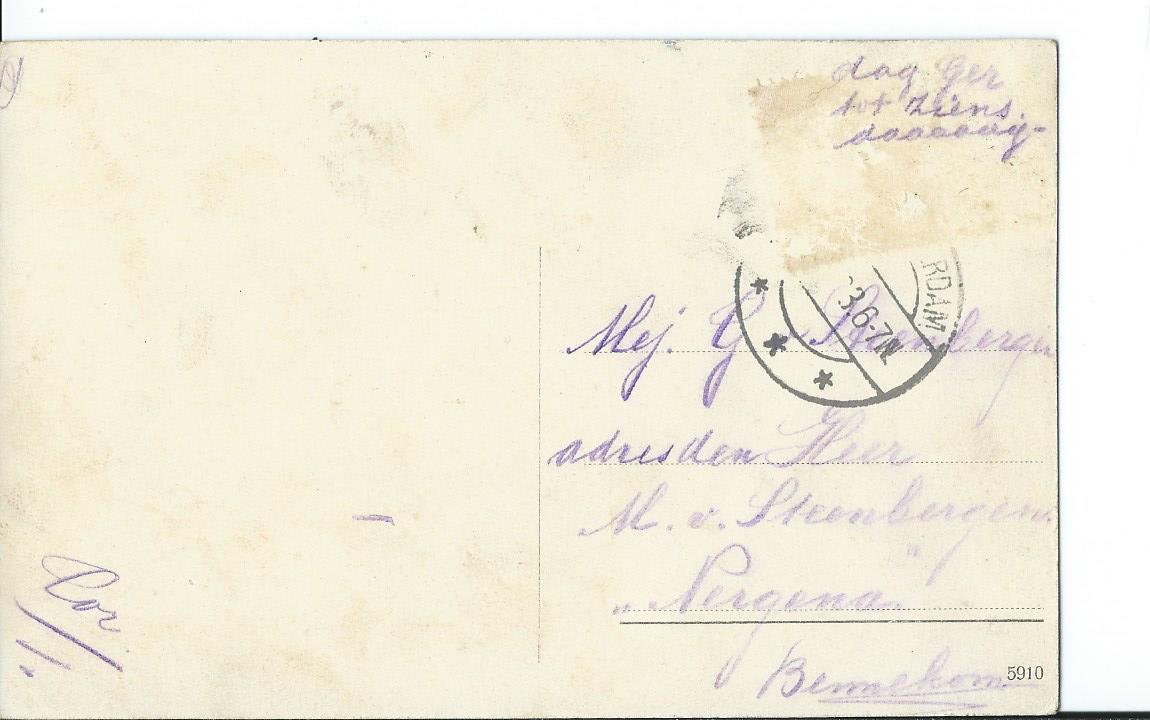 dag Ger
tot ziens.
daaaaag-
RDAM
3.6-7N
Mej. G. v Steenbergen
adres den Heer
M. v. Steenbergen.
"Nergena"
Bennekom
5910
Cor.